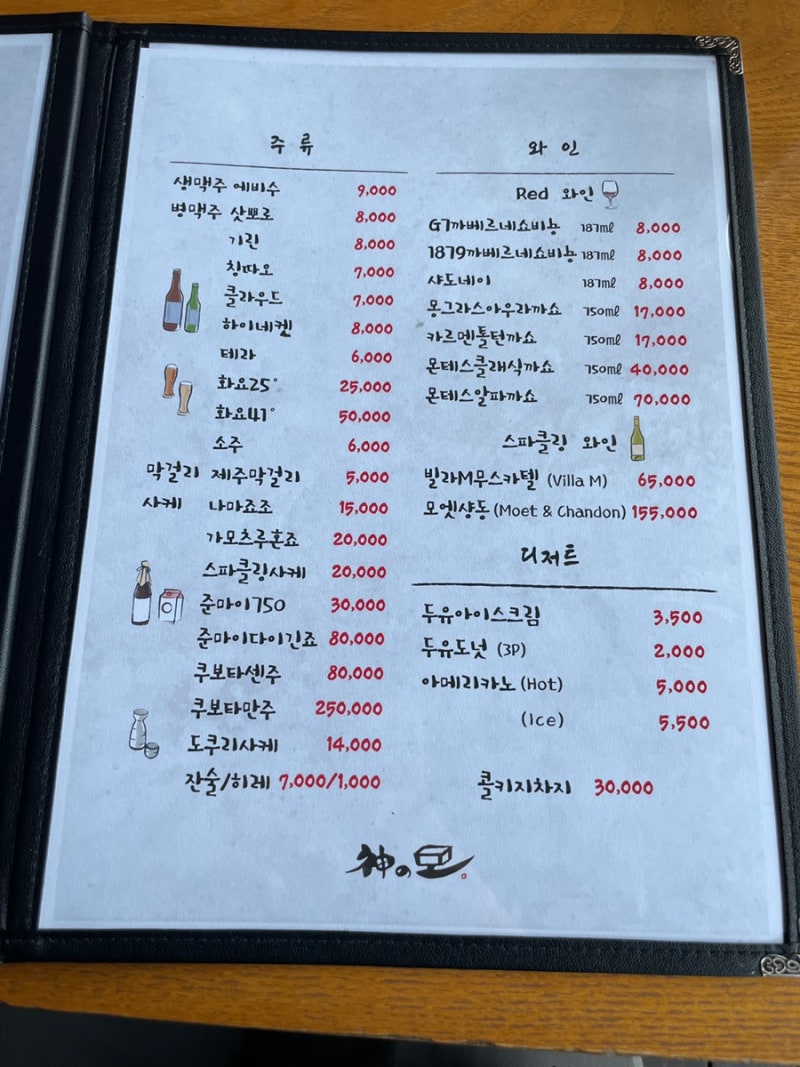 주류
생맥주 에비수 9,000
병맥주 삿뽀로 8,000
기린 8,000
칭따오 7,000
클라우드 7,000
하이네켓 8,000
테라 6,000
화요25° 25,000
화요41° 50,000
소주 6,000
막걸리 제주막걸리 5,000
사케 나마죠조 15,000
가모츠루혼죠 20,000
스파클링사케 20,000
준마이750 30,000
준마이다이긴죠 80,000
쿠보타센주 80,000
쿠보타만주 250,000
도쿠리사케 14,000
잔술/히레 7,000/1,000
와인
Red 와인
G7까베르네쇼비뇽 187ml 8,000
1879까베르네쇼비뇽 187ml 8,000
샤도네이 187ml 8,000
몽그라스아우라까쇼 750ml 17,000
카르멘톨턴까쇼 750ml 17,000
몬테스클래식까쇼 750ml 40,000
몬테스알파까쇼 750ml 70,000
스파클링 와인
빌라M무스카텔 (Villa M) 65,000
모엣샹동 (Moet & Chandon) 155,000
디저트
두유아이스크림 3,500
두유도넛 (3P) 2,000
아메리카노 (Hot) 5,000
(Ice) 5,500
콜키지차지 30,000
神の모